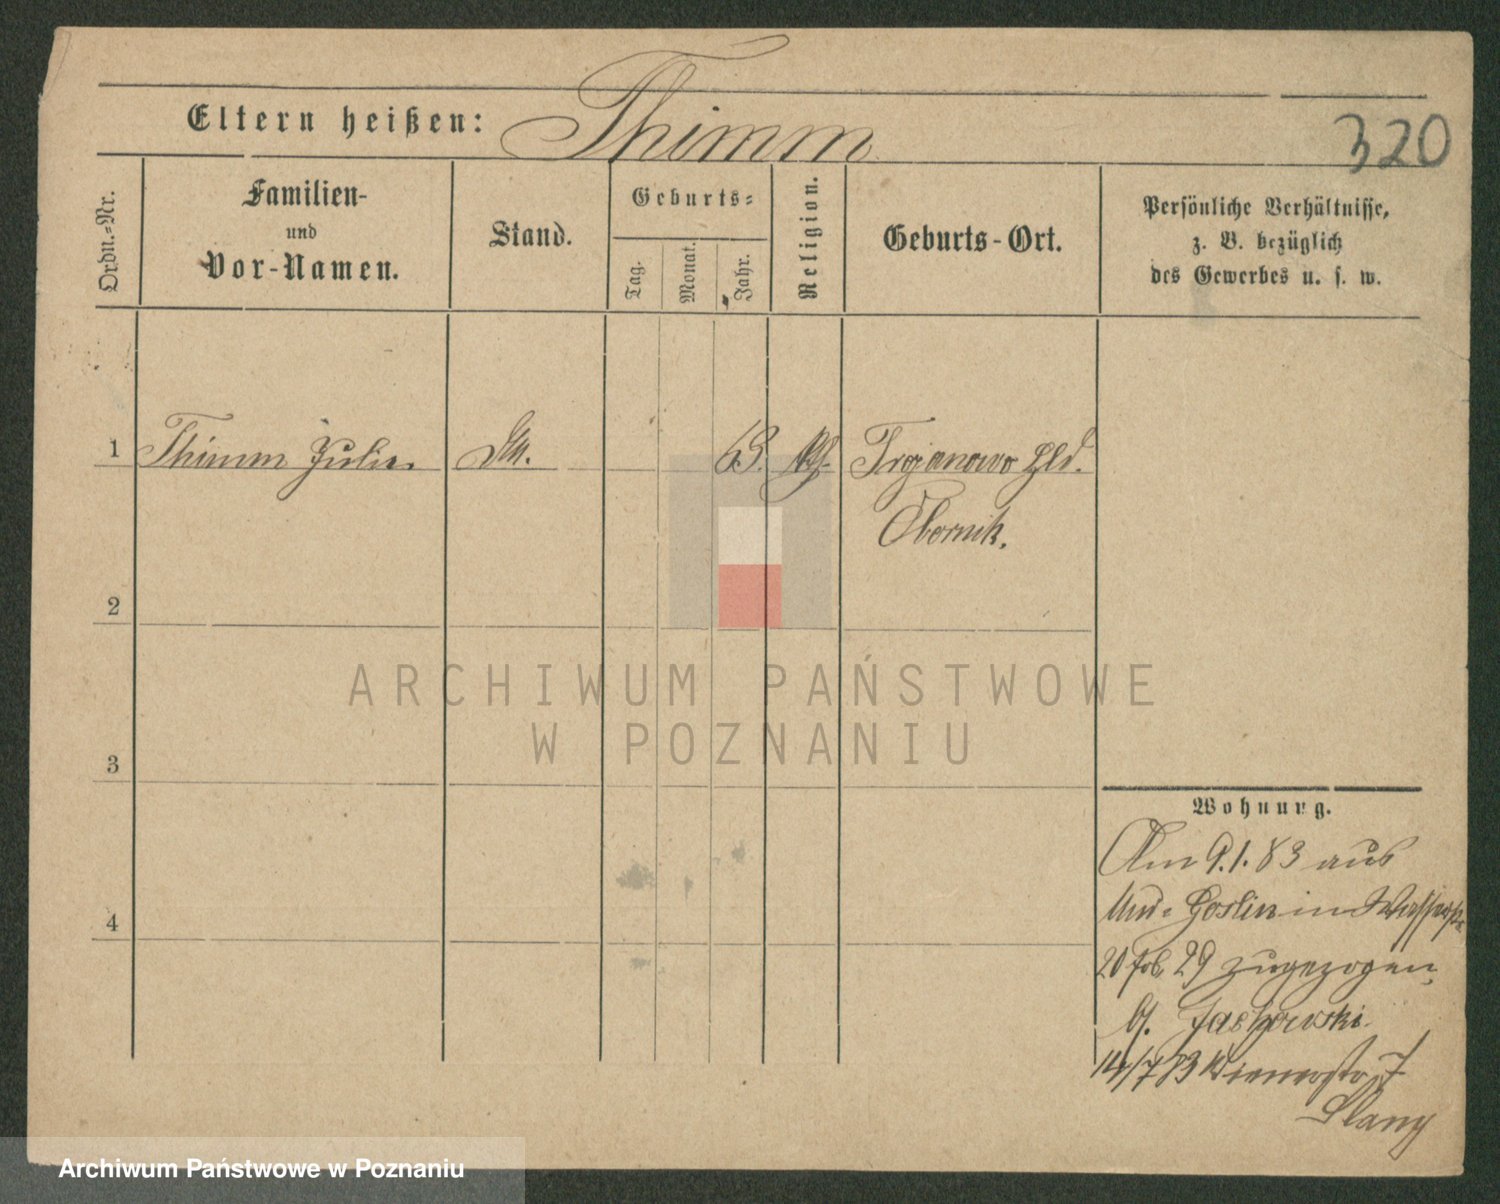 Eltern heißen: Thimm
320
Ordn.=Nr.
Familien-
und
Vor-Namen.
Stand.
Geburts=
Tag.
Monat.
Jahr.
Religion.
Geburts-Ort.
Persönliche Verhältnisse,
z. B. bezüglich
des Gewerbes u. s. w.
1 Thimm Julie. 63. Trojanowo Hld.
Obornik.
2
3
4
Wohnung.
Am 9.1.83 aus
Goslin in
20 29 zugezogen
b.
14/7 83 Wienerstr 7
Slany
ARCHIWUM PAŃSTWOWE
W POZNANIU
Archiwum Państwowe w Poznaniu